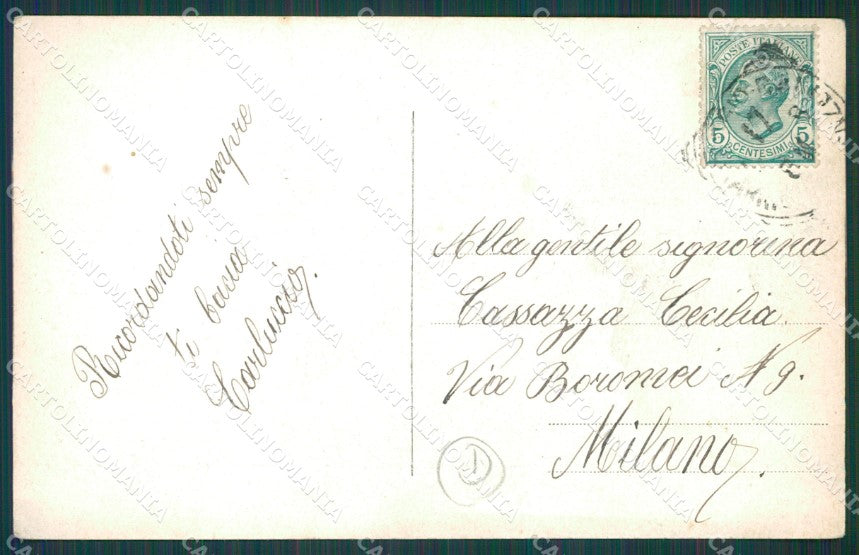 Ricordandoti sempre
ti bacia
Carluccio.
POSTE ITALIANE
5 5
CENTESIMI
Alla gentile signorina
Cassazza Cecilia.
Via Boromei N 9.
Milano.
1
CARTOLINOMANIA